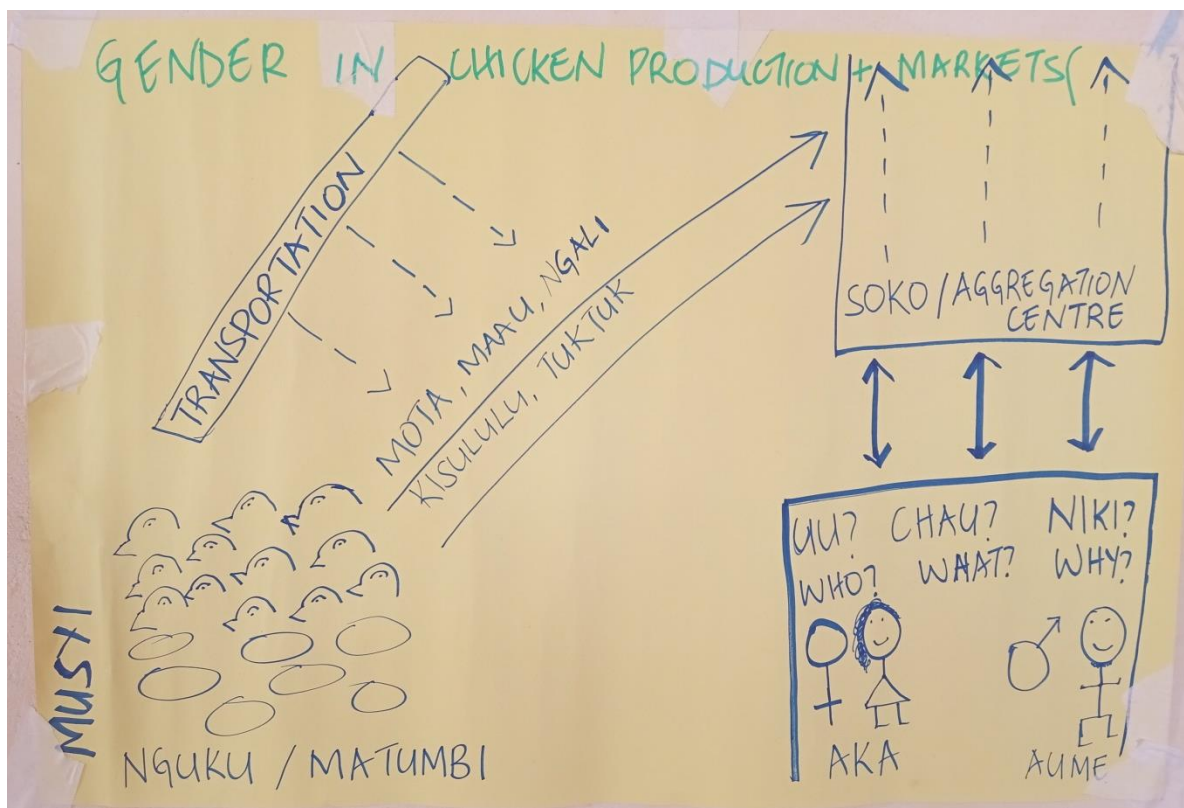 GENDER IN CHICKEN PRODUCTION + MARKETS(
TRANSPORTATION
MOTA, MAAU, NGALI
KISULULU, TUKTUK
SOKO / AGGREGATION
CENTRE
UU? CHAU? NIKI?
WHO? WHAT? WHY?
AKA
AUME
NGUKU / MATUMBI